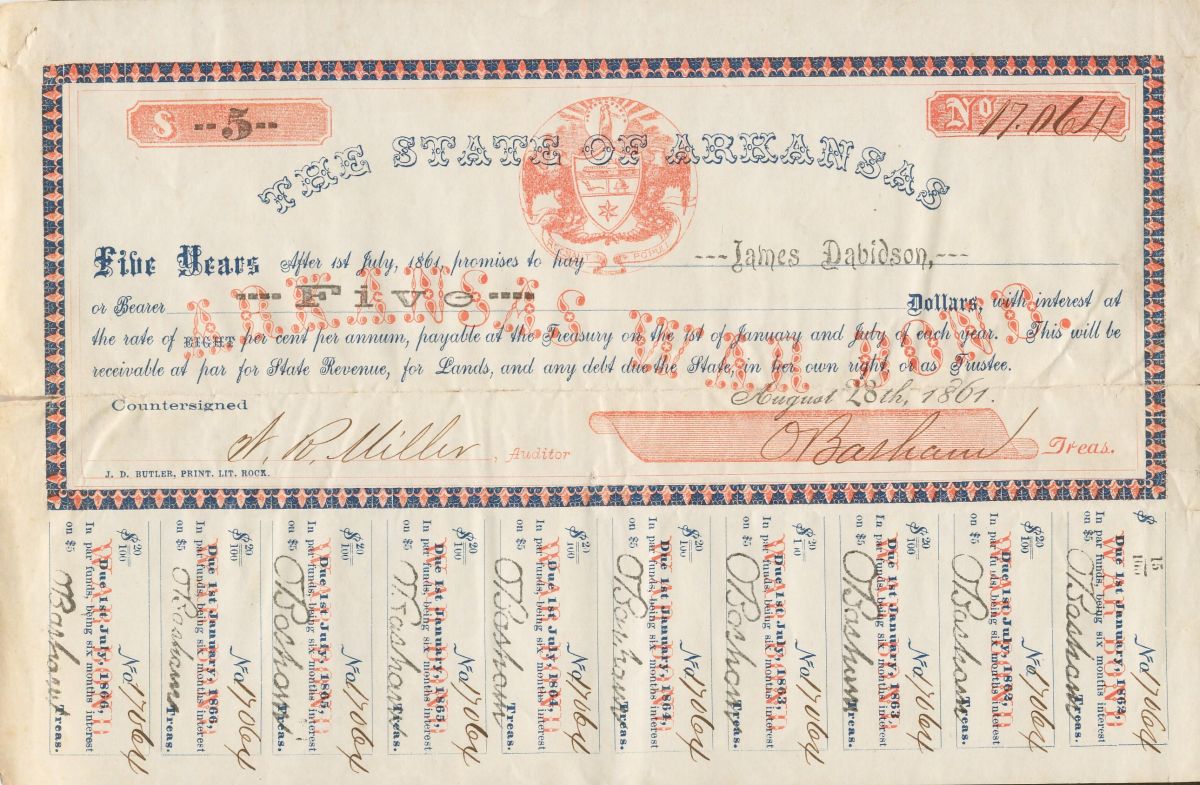 $ --5--
No 17.064
THE STATE OF ARKANSAS
ARKANSAS WAR BOND.
Five Years After 1st July, 1861, promises to pay ---James Davidson,---
or Bearer ---Five--- Dollars, with interest at
the rate of EIGHT per cent per annum, payable at the Treasury on the 1st of January and July of each year. This will be
receivable at par for State Revenue, for Lands, and any debt due the State, in her own right, or as Trustee.
August 28th, 1861.
Countersigned
W. R. Miller, Auditor
O Basham Treas.
J. D. BUTLER, PRINT. LIT. ROCK.
$ 20/100 No 17064
WAR BOND
Due 1st July, 1866,
In par funds, being six months interest
on $5 O Basham Treas.
$ 20/100 No 17064
WAR BOND
Due 1st January, 1866,
In par funds, being six months interest
on $5 O Basham Treas.
$ 20/100 No 17064
WAR BOND
Due 1st July, 1865,
In par funds, being six months interest
on $5 O Basham Treas.
$ 20/100 No 17064
WAR BOND
Due 1st January, 1865,
In par funds, being six months interest
on $5 O Basham Treas.
$ 20/100 No 17064
WAR BOND
Due 1st July, 1864,
In par funds, being six months interest
on $5 O Basham Treas.
$ 20/100 No 17064
WAR BOND
Due 1st January, 1864,
In par funds, being six months interest
on $5 O Basham Treas.
$ 20/100 No 17064
WAR BOND
Due 1st July, 1863,
In par funds, being six months interest
on $5 O Basham Treas.
$ 20/100 No 17064
WAR BOND
Due 1st January, 1863
In par funds, being six months interest
on $5 O Basham Treas.
$ 20/100 No 17064
WAR BOND
Due 1st July, 1862,
In par funds, being six months interest
on $5 O Basham Treas.
$ 15/100 No 17064
WAR BOND
Due 1st January, 1862,
In par funds, being six months interest
on $5 O Basham Treas.